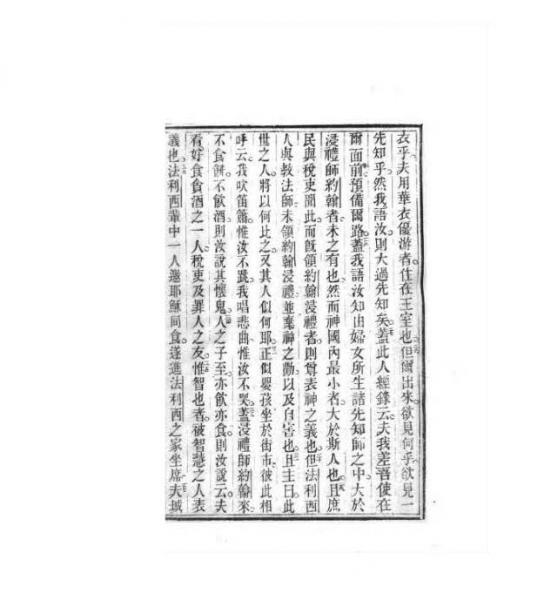 衣乎夫用華衣優游者住在王室也但爾出來欲見何乎欲見一
先知乎然我語汝則大過先知矣蓋此人經錄云夫我差吾使在
爾面前預備爾路蓋我語汝知由婦女所生諸先知師之中大於
浸禮師約翰者未之有也然而神國內最小者大於斯人也且庶
民與稅吏聞此而旣領約翰浸禮者則算表神之義也但法利西
人與教法師未領約翰浸禮並棄神之勸以及自害也且主曰此
世之人將以何比之又其人似何耶正似嬰孩坐於街市彼此相
呼云我吹笛簫惟汝不跳我唱悲曲惟汝不哭蓋浸禮師約翰來
不食餅不飲酒則汝說其懷鬼人之子至亦飲亦食則汝說云夫
看好食貪酒之一人稅吏及罪人之友惟智也者被智慧之人表
義也法利西輩中一人邀耶穌同食遂進法利西之家坐席夫城